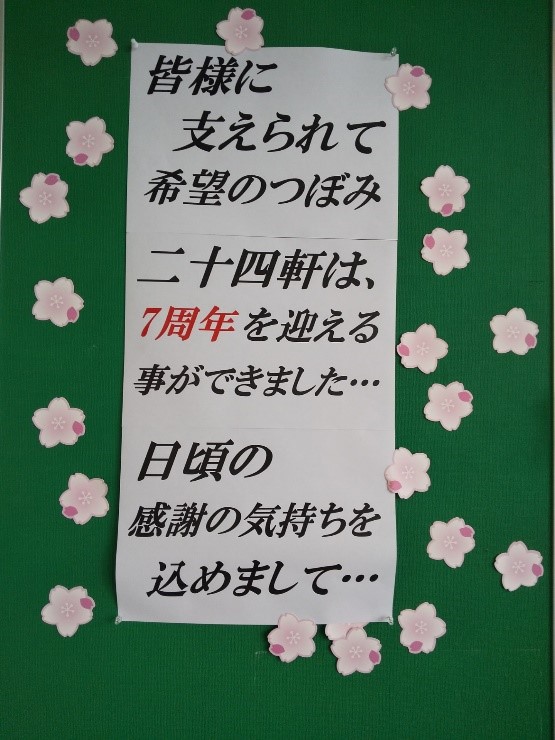 皆様に
支えられて
希望のつぼみ
二十四軒は、
7周年を迎える
事ができました…
日頃の
感謝の気持ちを
込めまして…